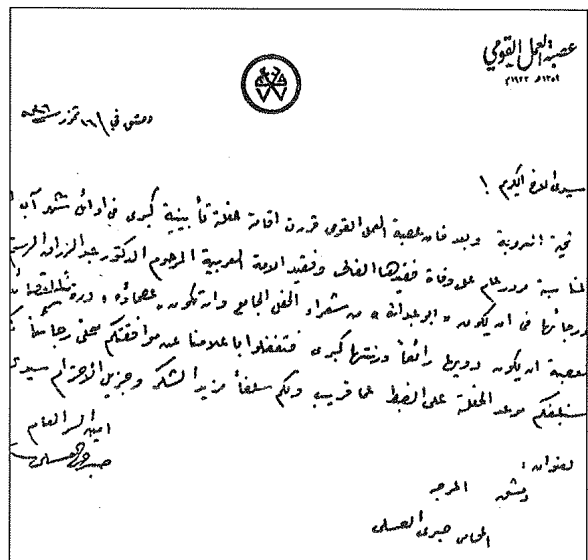 عصبة العمل القومي
دمشق في ١٦ تموز
سيدي الاخ الكريم !
تحية العروبة وبعد فان عصبة العمل القومي قررت اقامة حفلة تأبينية كبرى في اوائل شهر آب
لمناسبة مرور عام على وفاة فقيدها الغالي وفقيد الامة العربية المرحوم الدكتور عبد الرزاق
ورجاؤها في ان يكون من شعراء الحفل الجامع وان تكون
العصبة ان يكون دويها رائعاً ورنتها كبرى فتفضلوا باعلامنا عن موافقتكم
سنبلغكم موعد الحفلة على الضبط عما قريب ولكم سلفاً مزيد الشكر وجزيل الاحترام سيدي
امين السر العام
صبري العسلي
العنوان :
دمشق المرجه
المحامي صبري العسلي